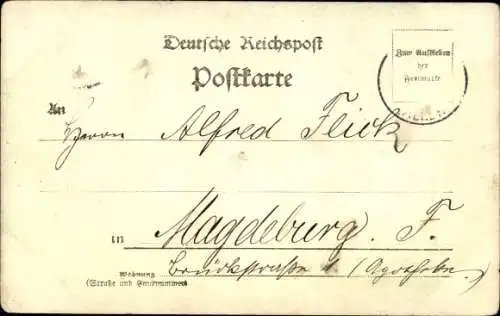 Deutsche Reichspost
Postkarte
Zum Aufkleben
der
Freimarke
An
Herrn Alfred Flick
in Magdeburg. F.
Wohnung Brückstrasse 1 (Apotheke.
(Straße und Hausnummer)